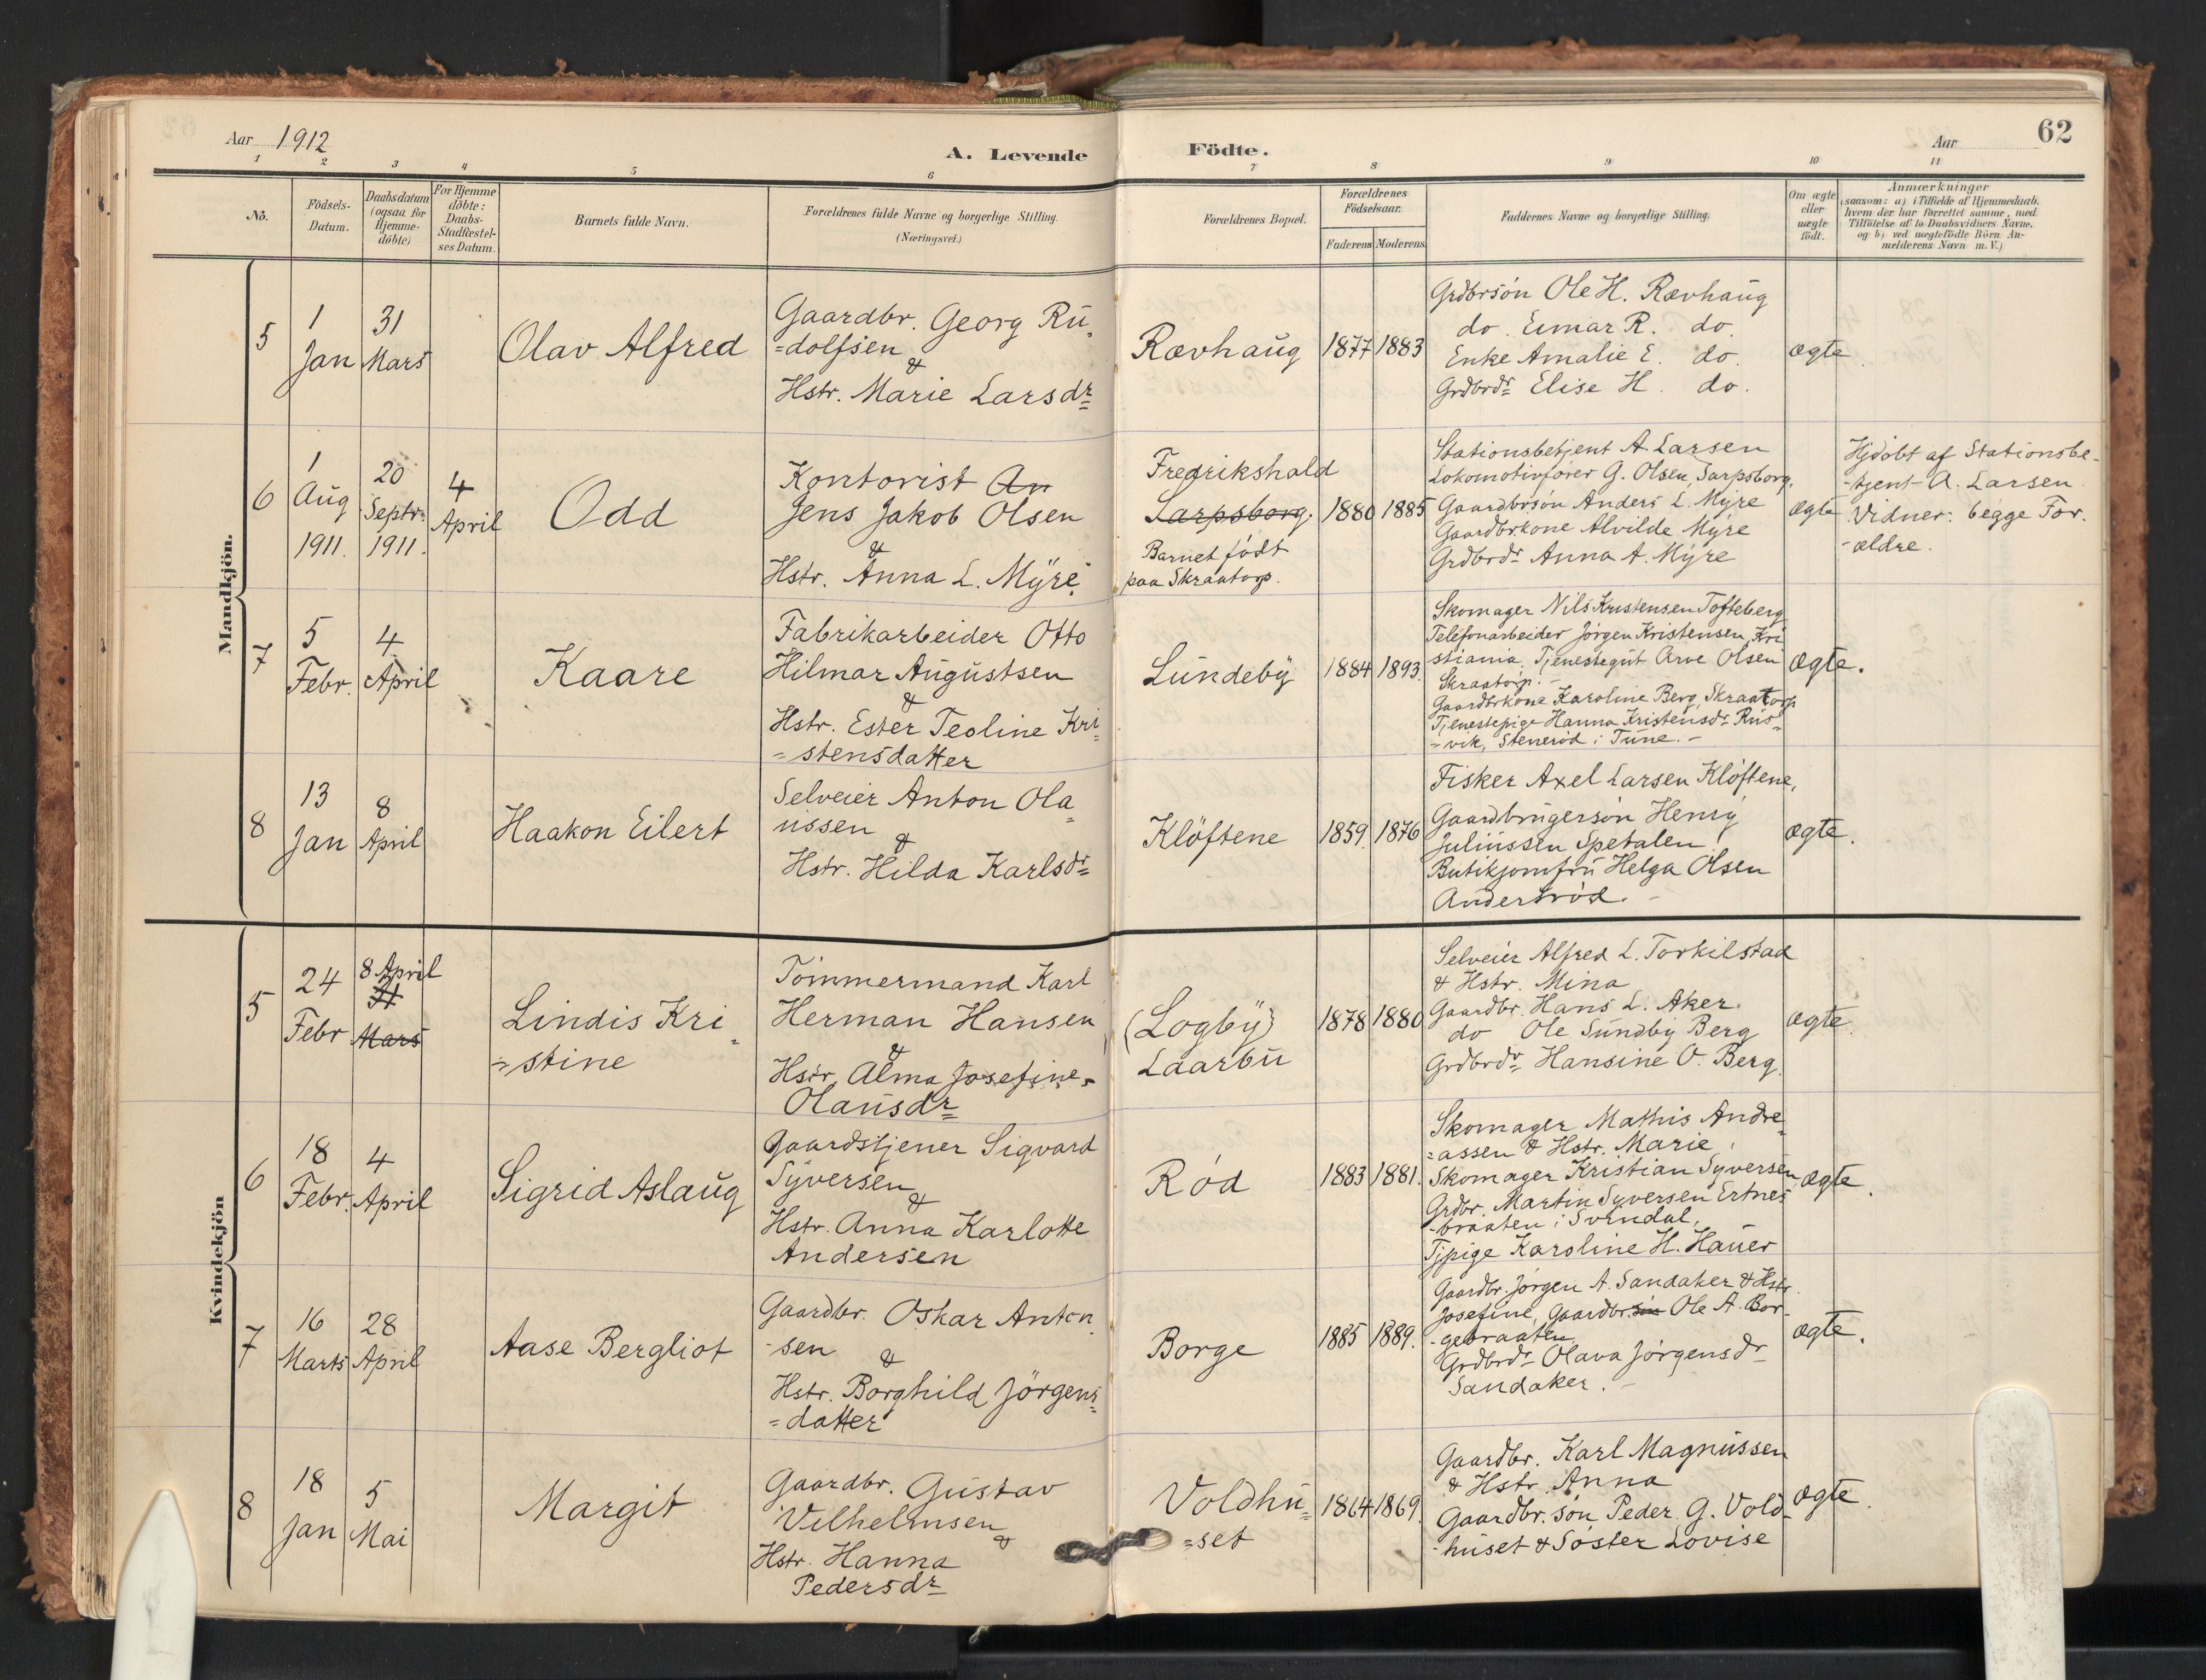 Aar 1912
A. Levende
Födte.
Aar
62
1 2 3 4 5 6 7 8 9 10 11
No.
Födsels-
Datum.
Daabsdatum
(ogsaa for
Hjemme-
döbte)
For Hjemme
döbte:
Daabs-
Stadfæstel-
ses Datum.
Barnets fulde Navn.
Forældrenes fulde Navne og borgerlige Stilling.
(Næringsvei.)
Forældrenes Bopæl.
Forældrenes
Födselsaar.
Faderens
Moderens
Faddernes Navne og borgerlige Stilling.
Om ægte
eller
uægte
födt.
Anmærkninger
(saasom: a) i Tilfælde af Hjemmedaab,
hvem der har forrettet samme, med
Tilföielse af to Daabsvidners Navne,
og b) ved uægtefödte Börn An-
melderens Navn m.V.)
Mandkjön.
5
1
Jan
31
Mars
Olav Alfred
Gaardbr. Georg Ru
=dolfsen
&
Hstr. Marie Larsdr
Rævhaug
1877
1883
Grdbrsön Ole H. Rævhaug
do. Eimar R. do.
Enke Amalie E. do.
Grdbrdr Elise H. do.
ægte
6
1
Aug
1911.
20
Septr.
1911.
4
April
Odd
Kontorist An
Jens Jakob Olsen
&
Hstr. Anna L. Myre
Fredrikshald
Sarpsborg.
Barnet født
paa Skraatorp.
1880
1885
Stationsbetjent A. Larsen
Lokomotivfører G. Olsen, Sarpsborg.
Gaardbrsøn Anders L. Myre
Gaardbrkone Alvilde Myre
Grdbrdr Anna A. Myre
ægte
Hjdöbt af Stationsbe-
-tjent A. Larsen
Vidner: begge For-
-ældre.
7
5
Febr.
4
April
Kaare
Fabrikarbeider Otto
Hilmar Augustsen
&
Hstr. Ester Teoline Kri
=stensdatter
Lundeby
1884
1893.
Skomager Nils Kristensen Tofteberg
Telefonarbeider Jörgen Kristensen, Kri
stiania. Tjenestegut Arve Olsen
Skraatorp. -
Gaardbrkone Karoline Berg, Skraatorp
Tjenestepige Hanna Kristensdr Rus
=vik, Stenerød i Tune. -
ægte.
8
13
Jan
8
April
Haakon Eilert
Selveier Anton Ola
ussen
&
Hstr. Hilda Karlsdr
Klöftene
1859.
1876
Fisker Axel Larsen Klöftene,
Gaardbrugersøn Henry
Juliussen Spetalen
Butikjomfru Helga Olsen
Andersrød. -
ægte.
Kvindekjön
5
24
Febr
8 April
31
Mars
Lindis Kri
=stine
Tömmermand Karl
Herman Hansen
&
Hstr. Alma Josefine
Olausdr
(Logby)
Laarbu
1878
1880
Selveier Alfred L. Torkilstad
& Hstr. Mina
Gaardbr. Hans L. Aker.
do Ole Sundby Berg
Grdbrdr Hansine O. Berg.
ægte.
6
18
Febr.
4
April
Sigrid Aslaug
Gaardstjener Sigvard
Syversen
&
Hstr. Anna Karlotte
Andersen
Rød
1883
1881.
Skomager Mathis Andre
=assen & Hstr. Marie,
Skomager Kristian Syversen
Grdbr. Martin Syversen Ertnes
-braaten i Svendal,
Tjpige Karoline H. Hauer
ægte.
7
16
Marts
28
April
Aase Bergliot
Gaardbr. Oskar Anton
-sen
&
Hstr. Borghild Jörgens
=datter
Borge
1885
1889.
Gaardbr. Jörgen A. Sandaker & Hstr.
Josefine, Gaardbr.søn Ole A. Bor-
-gebraaten
Grdbrdr Olava Jørgensdr
Sandaker. -
ægte.
8
18
Jan
5
Mai
Margit
Gaardbr. Gustav
Vilhelmsen
&
Hstr. Hanna
Pedersdr
Voldhu
=set
1864
1869.
Gaardbr. Karl Magnussen
& Hstr. Anna
Gaardbr.søn Peder G. Vold-
-huset & Søster Lovise
ægte.